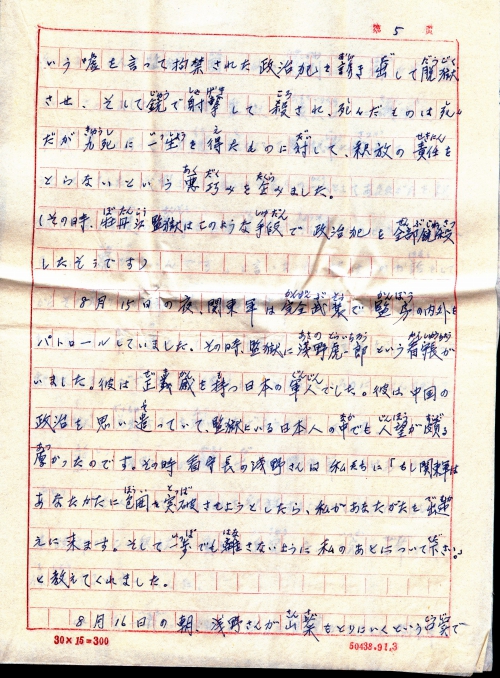 第 5 頁
いう嘘を言って拘禁された政治犯を誘き出して脱獄
させ、そして銃で射撃して殺され、死んだものは死ん
だが九死に一生を得たものに対して、釈放の責任を
とらないという悪巧みを企みました。
(その時、牡丹江監獄はこのような手段で政治犯を全部銃殺
したそうです)
8月15日の夜、関東軍は完全武装で監房の内外を
パトロールしていました。その時、監獄に浅野虎一郎という看守長が
いました。彼は正義感を持つ日本の軍人でした。彼は中国の
政治を思い造っていて、監獄にいる日本人の中でも人望が頗る
厚かったのです。その時看守長の浅野さんは私たちに「もし関東軍は
あなたがたに包囲を突破させようとしたら、私があなたがたを出迎
えに来ます。そして一歩でも離さないように私のあとについて下さい。」
と教えてくれました。
8月16日の朝、浅野さんが山菜をとりにいくという口実で
30×15=300
50438.91.3